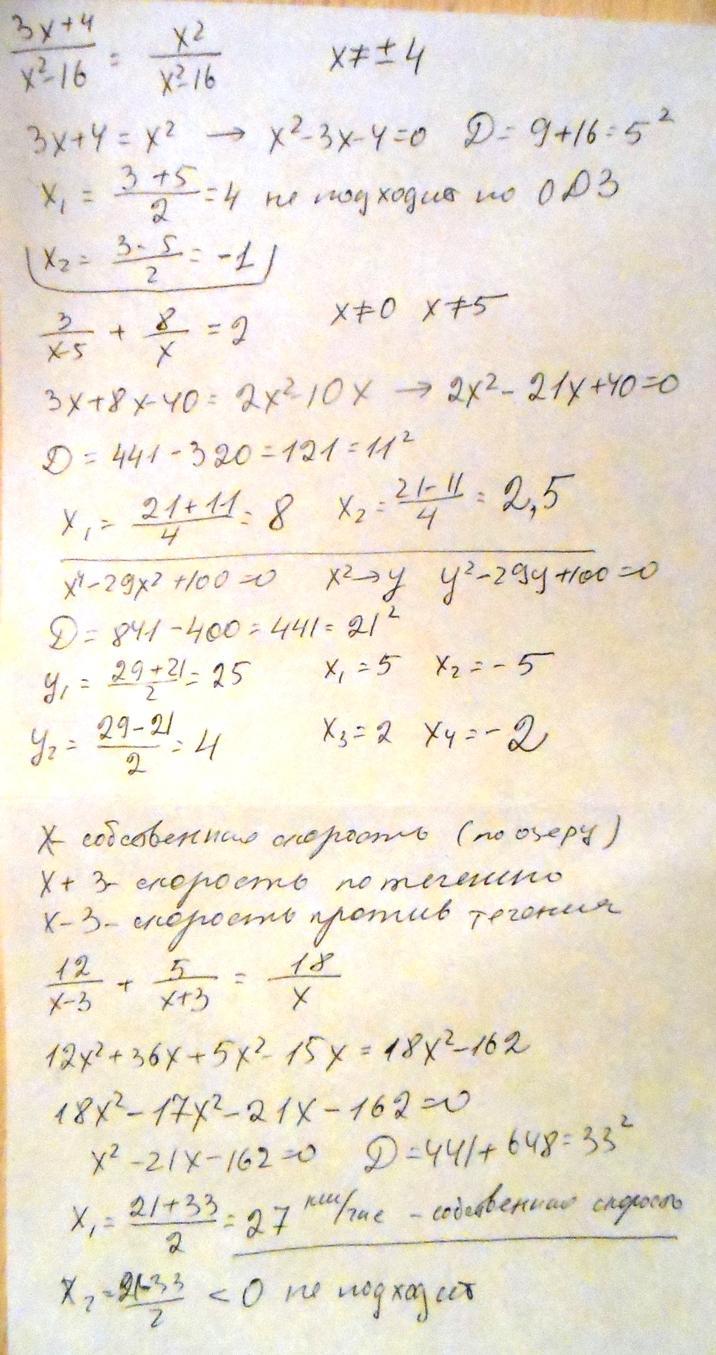 (3x+4)/(x²-16) = x²/(x²-16)   x≠±4
3x+4=x² → x²-3x-4=0   D=9+16=5²
x₁ = (3+5)/2 = 4 не подходит по ОДЗ
x₂ = (3-5)/2 = -1
3/(x-5) + 8/x = 2   x≠0   x≠5
3x+8x-40=2x²-10x → 2x²-21x+40=0
D=441-320=121=11²
x₁ = (21+11)/4 = 8   x₂ = (21-11)/4 = 2,5
x⁴-29x²+100=0   x²→y   y²-29y+100=0
D=841-400=441=21²
y₁ = (29+21)/2 = 25   x₁=5   x₂=-5
y₂ = (29-21)/2 = 4   x₃=2   x₄=-2
x- собственная скорость (по озеру)
x+3- скорость по течению
x-3- скорость против течения
12/(x-3) + 5/(x+3) = 18/x
12x²+36x+5x²-15x=18x²-162
18x²-17x²-21x-162=0
x²-21x-162=0   D=441+648=33²
x₁ = (21+33)/2 = 27 км/час - собственная скорость
x₂ = (21-33)/2 < 0 не подходит